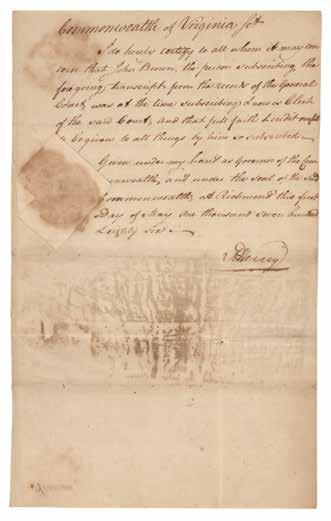 Commonwealth of Virginia sct
I do hereby certify to all whom it may con
cern that John Brown, the person subscribing the
foregoing transcript from the records of the General
Court, was at the time subscribing & now is Clerk
of the said Court, and that full faith & credit ought
to be given to all things by him so subscribed.
Given under my hand as Governor of the Com
monwealth, and under the seal of the said
Commonwealth at Richmond this first
day of May one thousand seven hundred
& eighty six.
P. Henry